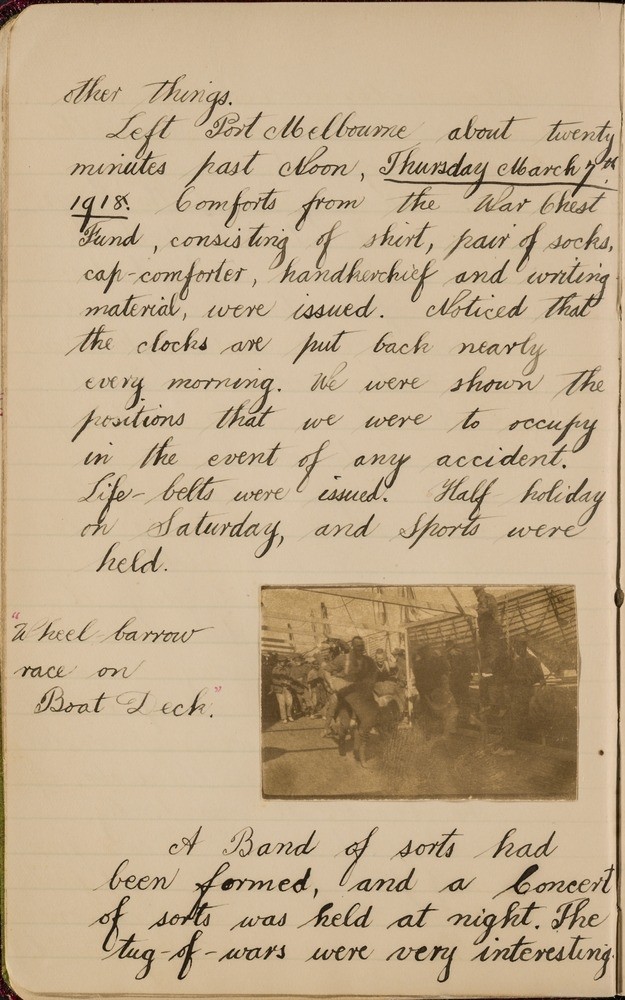 other things.
Left Port Melbourne about twenty
minutes past Noon, Thursday March 7th
1918. Comforts from the War Chest
Fund, consisting of shirt, pair of socks,
cap-comforter, handkerchief and writing
material, were issued. Noticed that
the clocks are put back nearly
every morning. We were shown the
positions that we were to occupy
in the event of any accident.
Life-belts were issued. Half holiday
on Saturday, and Sports were
held.
"Wheel barrow
race on
Boat Deck."
A Band of sorts had
been formed, and a Concert
of sorts was held at night. The
tug-of-wars were very interesting.